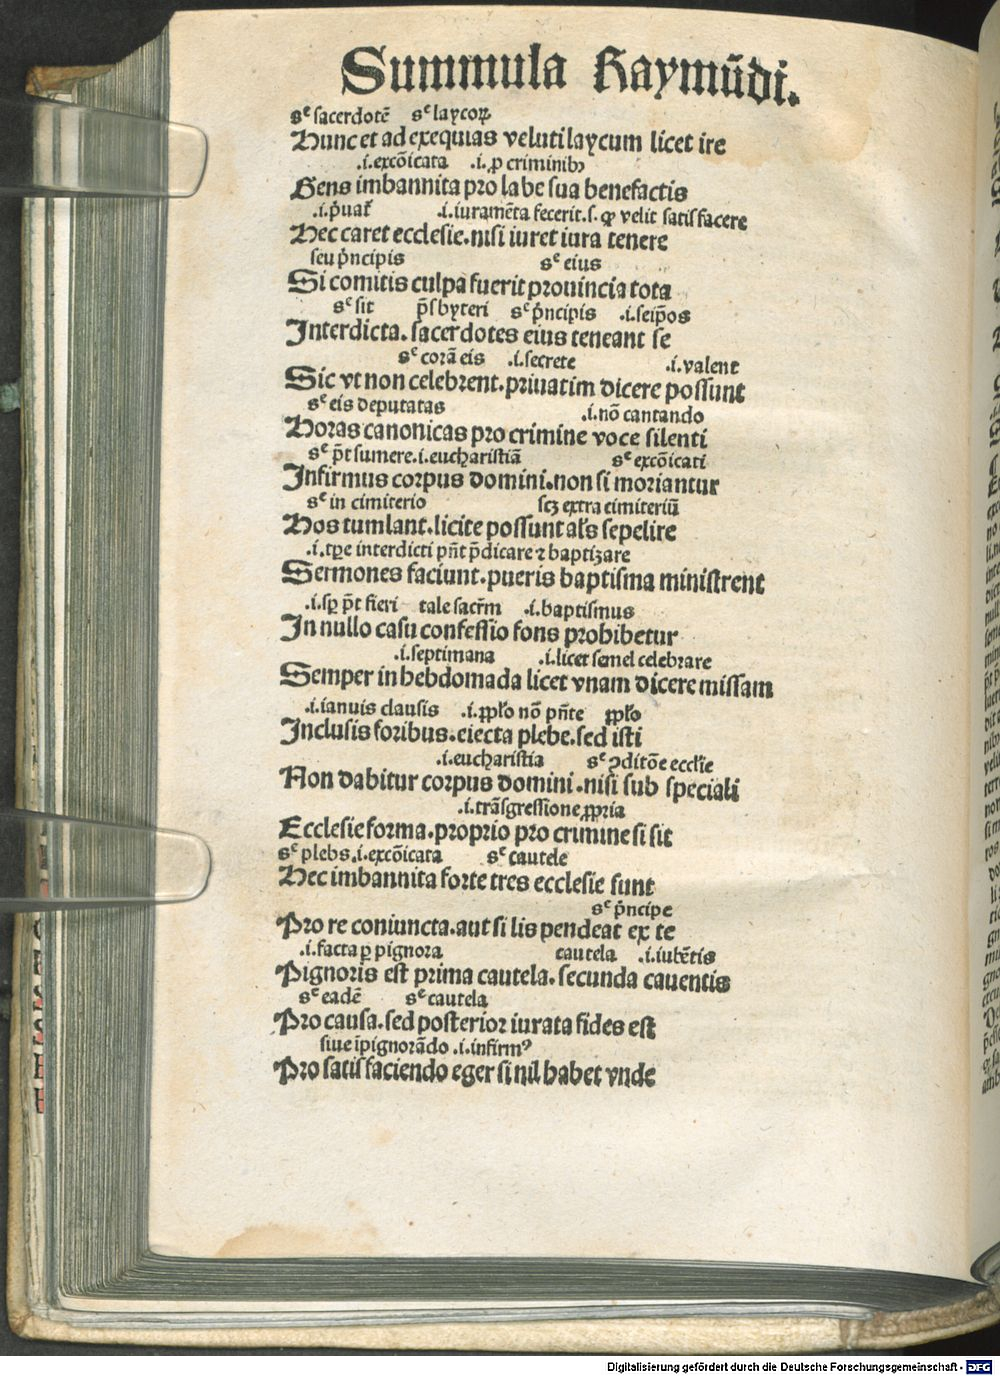 Summula Raymūdi.
sᶜ sacerdotē sᶜ laycoꝝ
Hunc et ad exequias veluti laycum licet ire
.i. excōicata .i. ꝓ criminibꝰ
Gens imbannita pro labe sua benefactis
.i. p̄uat᷑ .i. iuramēta fecerit. s. ꝙ velit satisfacere
Hec caret ecclesie. nisi iuret iura tenere
seu p̄ncipis sᶜ eius
Si comitis culpa fuerit prouincia tota
sᶜ sit p̄sbyteri sᶜ p̄ncipis .i. seip̄os
Interdicta. sacerdotes eius teneant se
sᶜ corā eis .i. secrete .i. valent
Sic vt non celebrent. priuatim dicere possunt
sᶜ eis deputatas .i. nō cantando
Horas canonicas pro crimine voce silenti
sᶜ p̄t sumere .i. eucharistiā sᶜ excōicati
Infirmus corpus domini. non si moriantur
sᶜ in cimiterio scꝫ extra cimiteriū
Hos tumlant. licite possunt al̄s sepelire
.i. tꝑe interdicti pn̄t p̄dicare ⁊ baptizare
Sermones faciunt. pueris baptisma ministrent
.i. sꝑ p̄t fieri tale sacr̄m .i. baptismus
In nullo casu confessio fons prohibetur
.i. septimana .i. licet semel celebrare
Semper in hebdomada licet vnam dicere missam
.i. ianuis clausis .i. ppl̄o nō pn̄te ppl̄o
Inclusis foribus. eiecta plebe. sed isti
.i. eucharistia sᶜ ꝯditōe eccl̄ie
Non dabitur corpus domini. nisi sub speciali
.i. trāsgressione ꝓpria
Ecclesie forma. proprio pro crimine si sit
sᶜ plebs .i. excōicata sᶜ cautele
Hec imbannita forte tres ecclesie sunt
sᶜ p̄ncipe
Pro re coniuncta. aut si lis pendeat ex te
.i. facta ꝑ pignora cautela .i. iubētis
Pignoris est prima cautela. secunda cauentis
sᶜ eadē sᶜ cautela
Pro causa. sed posterior iurata fides est
siue īpignorādo .i. infirmꝰ
Pro satisfaciendo eger si nil habet vnde
Digitalisierung gefördert durch die Deutsche Forschungsgemeinschaft - DFG